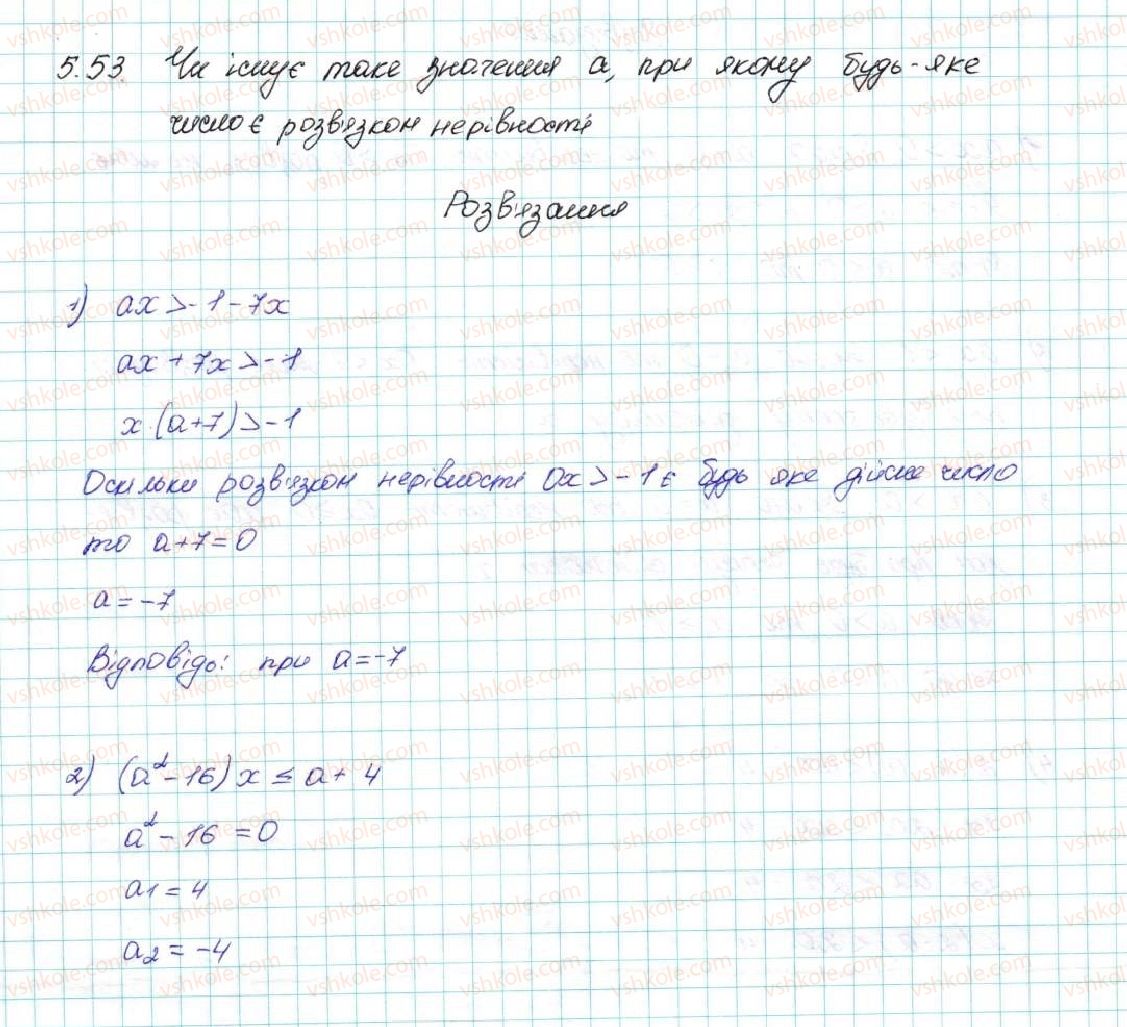 5.53. Чи існує таке значення a, при якому будь-яке
число є розв'язком нерівності
Розв'язання
1) ax > -1 - 7x
ax + 7x > -1
x·(a+7) > -1
Оскільки розв'язком нерівності 0x > -1 є будь яке дійсне число
то a+7=0
a = -7
Відповідь: при a = -7
2) (a² - 16) x ≤ a + 4
a² - 16 = 0
a1 = 4
a2 = -4